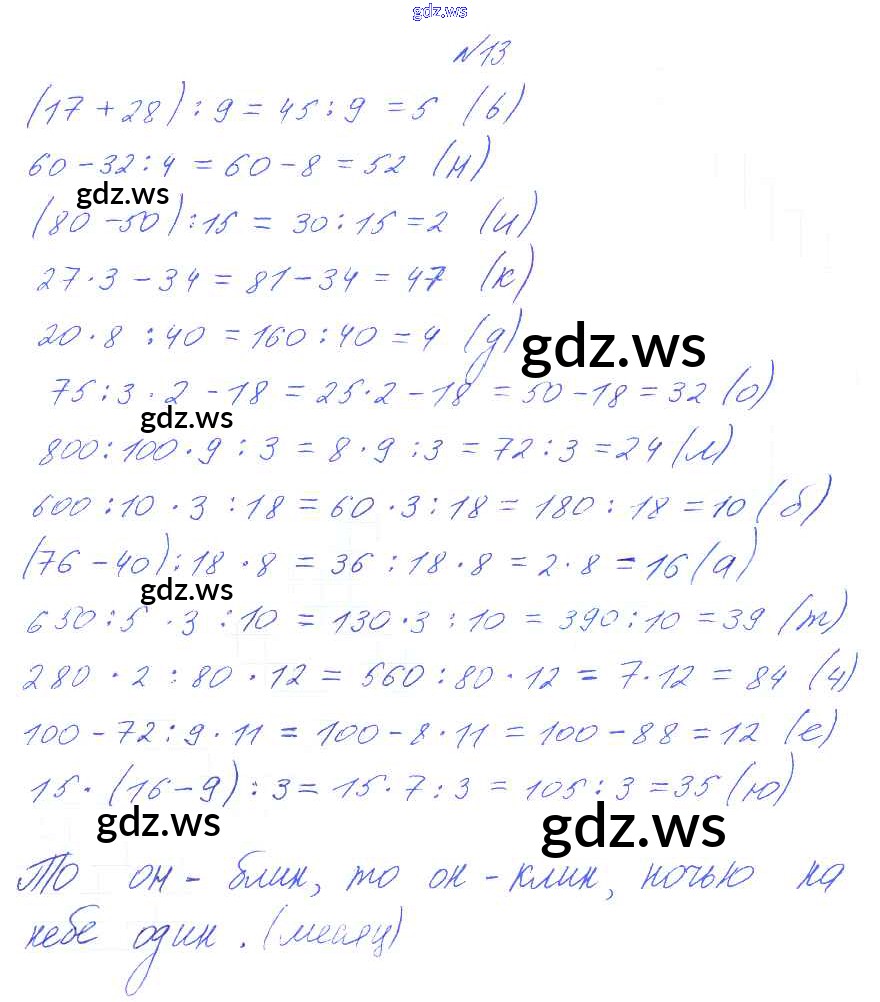 gdz.ws
№13
(17 + 28) : 9 = 45 : 9 = 5 (в)
60 - 32 : 4 = 60 - 8 = 52 (н)
gdz.ws
(80 - 50) : 15 = 30 : 15 = 2 (и)
27 · 3 - 34 = 81 - 34 = 47 (к)
20 · 8 : 40 = 160 : 40 = 4 (д)
gdz.ws
75 : 3 · 2 - 18 = 25 · 2 - 18 = 50 - 18 = 32 (о)
gdz.ws
800 : 100 · 9 : 3 = 8 · 9 : 3 = 72 : 3 = 24 (л)
600 : 10 · 3 : 18 = 60 · 3 : 18 = 180 : 18 = 10 (б)
(76 - 40) : 18 · 8 = 36 : 18 · 8 = 2 · 8 = 16 (а)
gdz.ws
650 : 5 · 3 : 10 = 130 · 3 : 10 = 390 : 10 = 39 (т)
280 · 2 : 80 · 12 = 560 : 80 · 12 = 7 · 12 = 84 (ч)
100 - 72 : 9 · 11 = 100 - 8 · 11 = 100 - 88 = 12 (е)
15 · (16 - 9) : 3 = 15 · 7 : 3 = 105 : 3 = 35 (ю)
gdz.ws
gdz.ws
То он - блин, то он - клин, ночью на
небе один. (месяц)